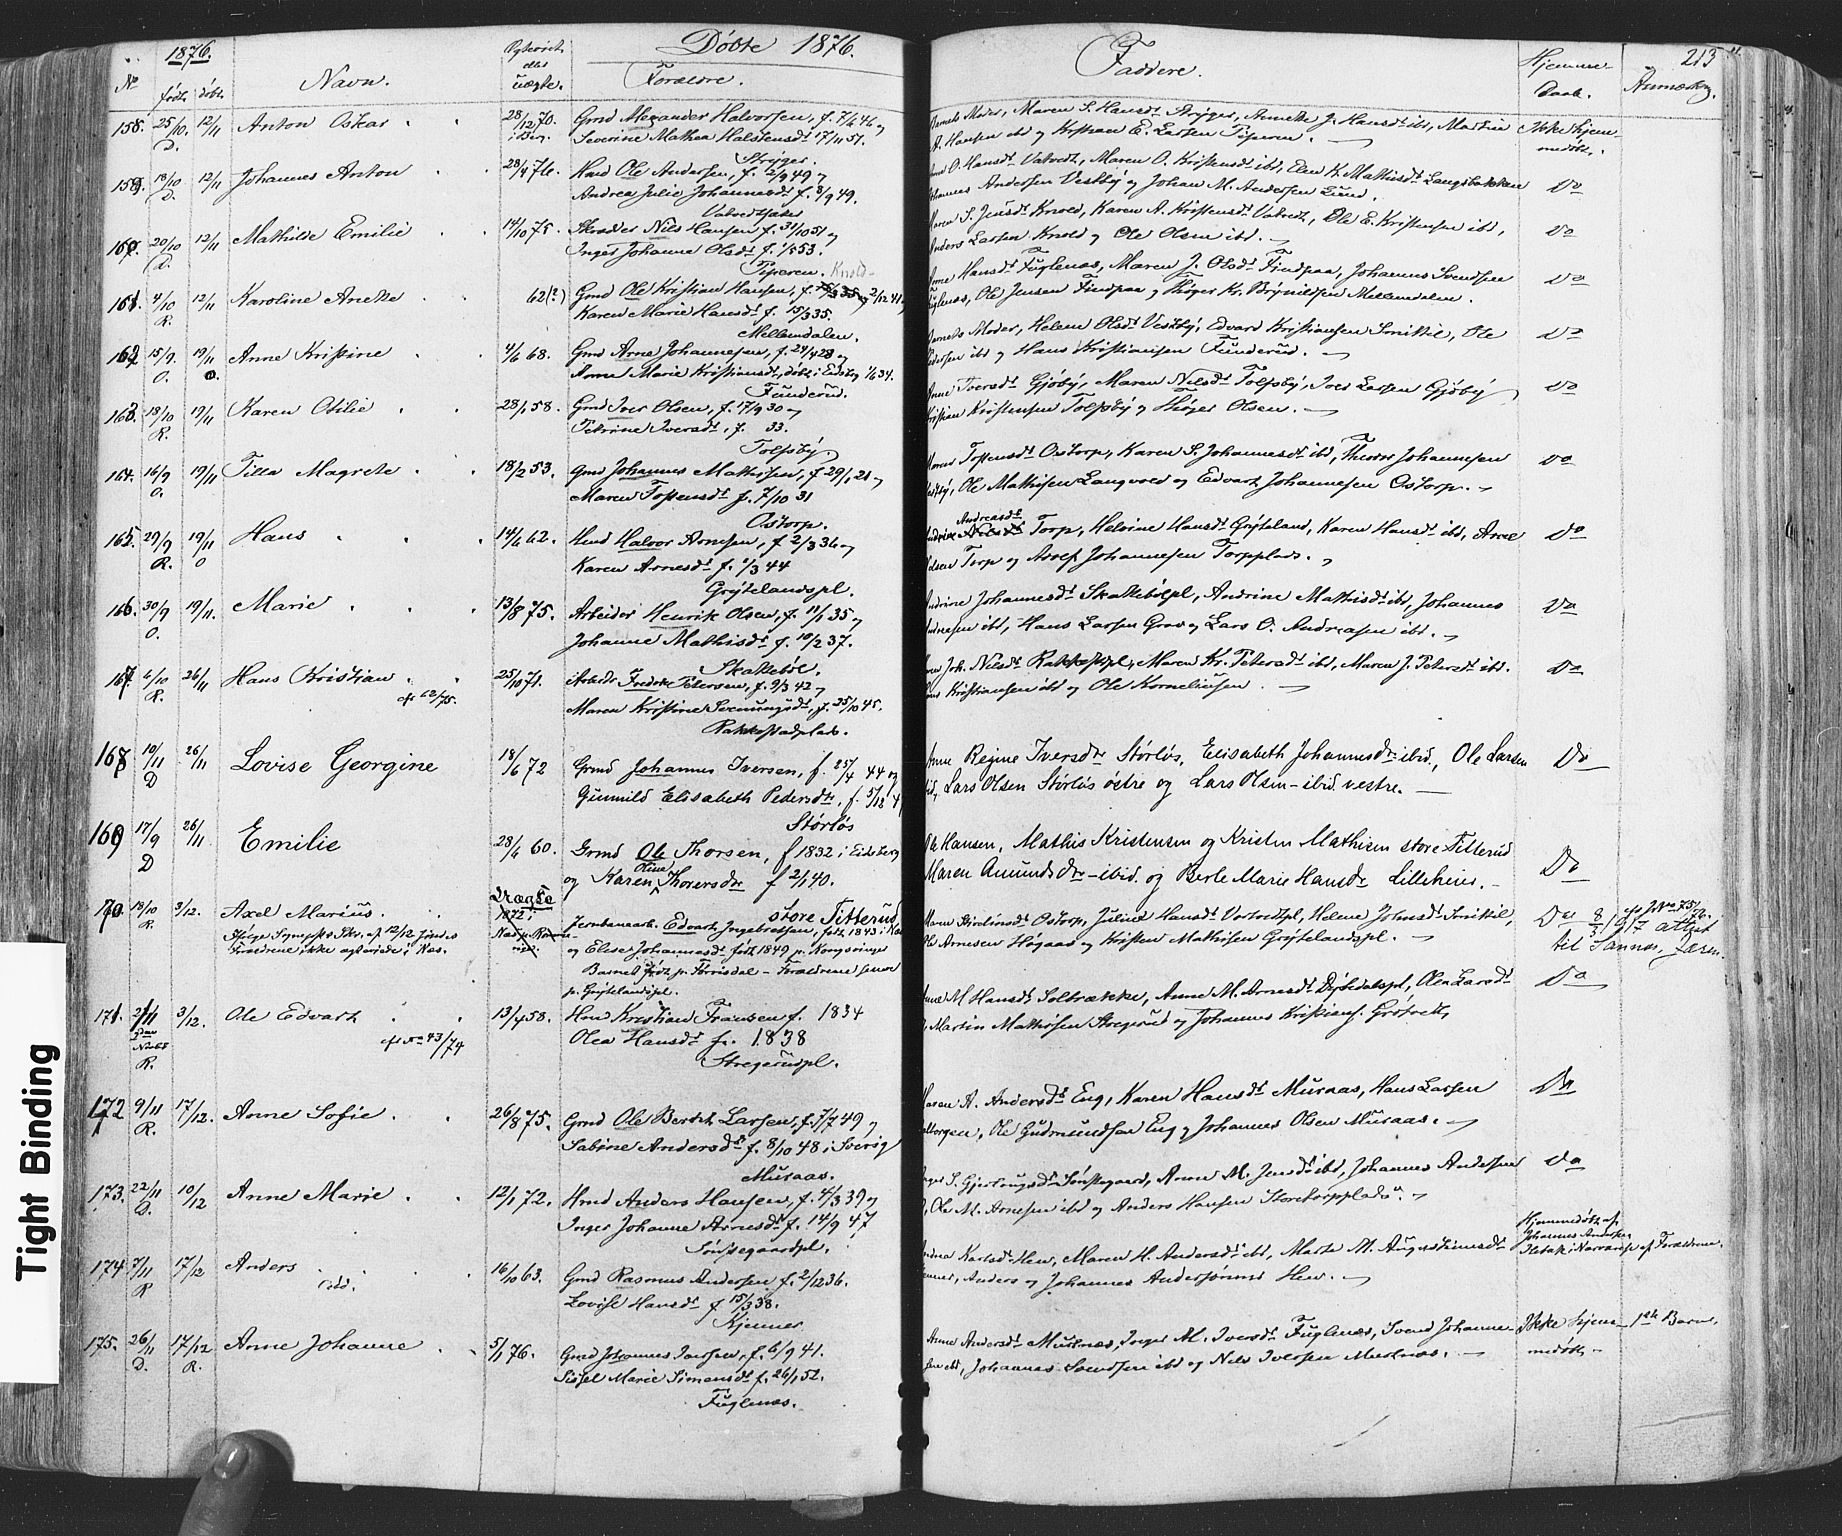 1876.
Døbte 1876.
Faddere.
213
No
født
døbt
Navn.
Forældre.
Hjemme-
Daab.
158. 25/10. 12/11 Anton Oskar
D.
28/12 70.
Gmd Alexander Halvorsen, f. 7/6 46 og
Severine Mathea Halstensdt 17/11 51.
Strÿger.
Barnets Moder, Maren S. Hansdt Strÿger, Annette J. Hansdt ibd, Martin
A. Hansen ibd og Kristian E. Larsen Tiperen.
Ikke hjem-
medøbt.
159. 18/10 12/11 Johannes Anton
D.
28/4 76.
Husmd Ole Andersen, f. 12/9 49 og
Andrea Julie Johannesdt f. 8/9 49.
O. Hansdt Vatvedt, Maren O. Kristensdt ibd, Elen K. Mathisdt Langsbakken
Johannes Andersen Vestbÿ og Johan M. Andersen Lund.
Do
160. 20/10 12/11 Mathilde Emilie
D.
14/10 75.
Skræder Nils Hansen f. 31/10 51 og
Inger Johanne Olsdt f. 1/5 53.
Tiperen. Knold
Maren S. Jensdt Knold, Karen A. Kristensdt Vatvedt, Ole E. Kristensen ibd,
Anders Larsen Knold og Ole Olsen ibd.
Do
161. 4/10 12/11 Karoline Anette
R.
62(?)
Gmd Ole Kristian Hansen, f.
Karen Marie Hansdt f. 15/3 35.
Mellemdalen.
Anne Hansdt Fuglenæs, Maren J. Olsdt Findpaa, Johannes Svendsen
Fuglenæs, Ole Jensen Findpaa og Thøger Kr. Brÿnildsen Mellemdalen.
Do
162. 15/9. 19/11 Anne Kristine
O. O.
4/6 68.
Gmd Arne Johannesen, f. 24/4 28 og
Anne Marie Kristiansdt, døbt i Eidsbg 1/6 34.
Funderud.
Barnets Moder, Helene Olsdt Vestbÿ, Edvard Kristiansen Smikkil, Ole
Pedersen ibd og Hans Kristiansen Funderud.
Do
163. 18/10 19/11 Karen Otilie
R.
28/1 58.
Gmd Iver Olsen, f. 17/9 30 og
Petrine Iversdt, f. 33.
Tolfsbÿ.
Anne Iversdt Gjøbÿ, Maren Nilsdt Tolfsbÿ, Iver Larsen Gjøbÿ
Kristian Kristensen Tolfsbÿ og Thøger Olsen.
Do
164. 16/9 19/11 Tilla Magrete
O.
18/2 53.
Gmd Johannes Mathisen, f 29/1 28 og
Maren Tostensdt f. 7/10 31
Ostorp.
Maren Tostensdt Ostorp, Karen S. Johannesdt ibd, Theodor Johannesen
Vestbÿ, Ole Mathisen Langvold og Edvart Johannesen Ostorp.
Do
165. 29/9 19/11 Hans
R. O
14/6 62.
Hmd Halvor Arnesen, f 2/3 36 og
Karen Arnesdt f. 1/3 44
Grÿtelandspl.
Andreasdt
Torp, Helvine Hansdt Grÿteland, Karen Hansdt ibd, Arne
Olsen Torp og Assef Johannesen Torpplads.
Do
166. 30/9 19/11. Marie
O.
13/8 75.
Arbeider Henrik Olsen, f. 11/1 35 og
Johanne Mathisdt f. 10/2 37.
Skattebøl.
Andrine Johannesdt Skattebølpl, Andrine Mathisdt ibd, Johannes
Andreasen ibd, Hans Larsen Grav og Lars O. Andreasen ibd.
Do
167. 6/10 26/11 Hans Kristian
R. cfr 62/75.
25/10 71.
Arbeider Fredrik Petersen, f. 9/3 42 og
Maren Kristine Svenungsdt, f. 25/10 45.
Rakkestadplads.
Joh. Nilsdt Rakkestpl, Maren Kr. Petersdt ibd, Maren J. Petersdt ibd.
Kristiansen ibd og Ole Korneliusen.
Do
168 10/11 26/11 Lovise Georgine
D
18/6 72
Grmd Johannes Iversen, f. 25/4 44 og
Gunnild Elisabeth Pedersdtr, f. 5/12 4
Størløs
Anne Regine Iversdtr Størløs, Elisabeth Johannesdtr ibid., Ole Larsen
ibid, Lars Olsen Størløs østre og Lars Olsen ibid. vestre.
Do
169 17/9 26/11 Emilie
D
28/6 60.
Grmd Ole Thorsen, f 1832 i Eidsberg
og Karen Oline Thorersdtr f 2/1 40.
store Titterud
Ole Hansen, Mathis Kristensen og Kristen Mathisen store Titterud
Maren Amundsdtr ibid. og Berte Marie Hansdtr Lilleheier.
Do
170. 18/10 3/12. Axel Marius.
R.
Forældrene ikke ægteviede i Næs.
Uægte
1872 i
Jernbanearb. Edvart Ingebretsen, født 1843 i Næs
og Elise Johannesdt født 1849 p. Kongsvinger
Barnet født p. Tørrisdal - Forældrene senere
p. Grÿtelandspl.
Ostorp, Juline Hansdt Vatvedtpl, Helene Johnsdt Smikkil,
Ole Arnesen Høgaas og Kristen Mathisen Grÿtelandspl.
Do
8/5 1917 attest
til Sannes, Jæren
171. 2/11 3/12. Ole Edvart
R.
cfr No 43/74
13/4 58.
Hmd Kristian Fransen f. 1834
Olea Hansdt f. 1838
Stregerudpl.
Anne M Hansdt Soltrække, Anne M. Arnesdt Dÿbedalspl, Olea Larsdt
Martin Mathisen Stregerud og Johannes Kristians. Grøtvett
Do
172 9/11 17/12. Anne Sofie
R.
26/8 75.
Gmd Ole Berdt Larsen, f. 7/7 49 og
Sabine Andersdt f. 8/10 48 i Sverig
Muraas.
Maren A. Andersdt Eng, Karen Hansdt Muraas, Hans Larsen
Melborgen, Ole Gudmundsen Eng og Johannes Olsen Muraas.
Do
173. 22/11 10/12 Anne Marie
D.
12/1 72.
Hmd Anders Hansen, f. 4/3 39 og
Inger Johanne Arnesdt f. 14/9 47
Sønstegaardpl.
Inger S. Gjertrugsdt Sønstegaard, Anne M. Jensdt ibd, Johannes Andersen
Ole M. Arnesen ibd og Anders Hansen Storetorpplads.
Do
174 7/11 17/12 Anders
R
16/10 63.
Gmd Rasmus Andersen f. 2/12 36.
Lovise Hansdt f 15/3 38.
Kjenner
Andrea Karlsdt Hen, Maren H. Andersdt ibd, Marte M. Augustinusdt
Kjenner, Anders og Johannes Anderssønner Hen.
Hjemmedøbt af
Johannes Anders.
i Nærværelse af Forældrene.
175. 26/11 17/12 Anne Johanne
D. R.
5/1 76.
Gmd Johannes Iversen, f. 6/9 41.
Sissel Marie Simensdt f. 26/1 52.
Fuglenæs.
Anne Andersdt Mustnæs, Inger M. Iversdt Fuglenæs, Svend Johanne-
sen ibd, Johannes Svendsen ibd og Nils Iversen Mustnæs.
Ikke hjem-
medøbt
1ste Barn.
Tight Binding